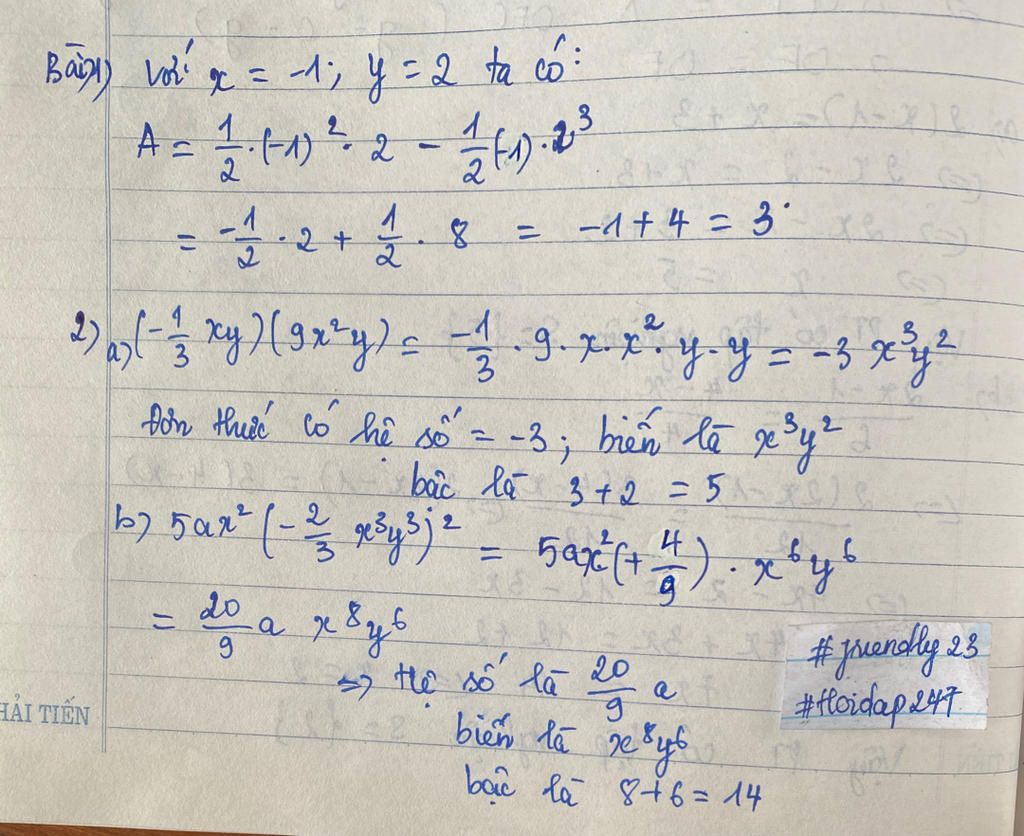 Bài 1) với x = -1; y = 2 ta có:
A = 1/2 · (-1)² · 2 - 1/2 (-1) · 2³
= -1/2 · 2 + 1/2 · 8 = -1 + 4 = 3
2) a) (-1/3 xy)(9x²y) = -1/3 · 9 · x · x² · y · y = -3 x³y²
Đơn thức có hệ số = -3; biến là x³y²
bậc là 3 + 2 = 5
b) 5ax² (-2/3 x³y³)² = 5ax² (+4/9) · x⁶y⁶
= 20/9 a x⁸y⁶
=> Hệ số là 20/9 a
biến là x⁸y⁶
bậc là 8+6 = 14
#friendly23
#Hoidap247
HẢI TIẾN